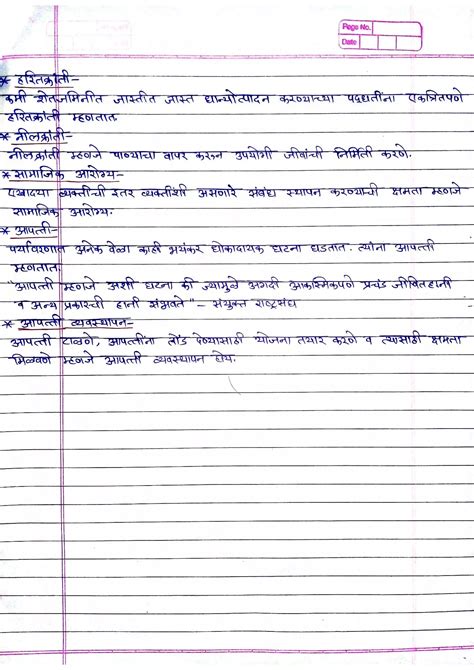 Page No.
Date
* हरितक्रांती-
कमी शेतजमिनीत जास्तीत जास्त धान्योत्पादन करण्याच्या पद्धतींना एकत्रितपणे
हरितक्रांती म्हणतात.
* नीलक्रांती-
नीलक्रांती म्हणजे पाण्याचा वापर करून उपयोगी जीवांची निर्मिती करणे.
* सामाजिक आरोग्य-
एखादया व्यक्तीची इतर व्यक्तींशी असणारे संबंध स्थापन करण्याची क्षमता म्हणजे
सामाजिक आरोग्य.
* आपत्ती-
पर्यावरणात अनेक वेळा काही भयंकर धोकादायक घटना घडतात. त्यांना आपत्ती
म्हणतात.
"आपत्ती म्हणजे अशी घटना की ज्यामुळे अगदी आकस्मिकपणे प्रचंड जीवितहानी
व अन्य प्रकारची हानी संभवते" - संयुक्त राष्ट्रसंघ
* आपत्ती व्यवस्थापन-
आपत्ती टाळणे, आपत्तींना तोंड देण्यासाठी योजना तयार करणे व त्यासाठी क्षमता
मिळवणे म्हणजे आपत्ती व्यवस्थापन होय.